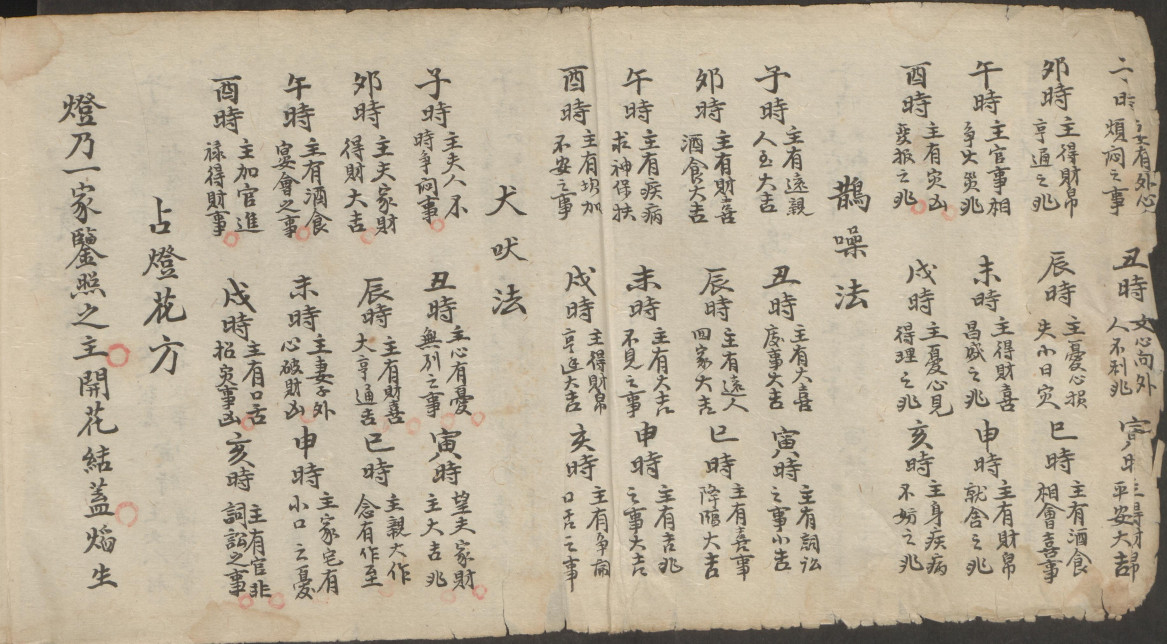 時主有外心煩悶之事　丑時女心向外人不利兆　寅時主得財帛平安大吉
卯時主得財帛亨通之兆　辰時主憂心損失小日灾　巳時主有酒食相會喜事
午時主官事相爭火災兆　未時主得財喜昌盛之兆　申時主有財帛就舍之兆
酉時主有灾凶哀报之兆　戌時主憂心見得理之兆　亥時主身疾病不妨之兆
鵲噪法
子時主有遠親人至大吉　丑時主有大喜慶事大吉　寅時主有詞讼之事小吉
卯時主有財喜酒食大吉　辰時主有遠人回家大吉　巳時主有喜事降臨大吉
午時主有疾病求神保扶　未時主有大吉不見之事　申時主有吉兆之事大吉
酉時主有坎加不安之事　戌時主得財帛亨近大吉　亥時主有争鬧口舌之事
犬吠法
子時主夫人不時争问事　丑時主心有憂無别之事　寅時望夫家財主大吉兆
卯時主夫家財得財大吉　辰時主有財喜大亨通吉　巳時主親大作念有作至
午時主有酒食宴會之事　未時主妻子外心破財凶　申時主家宅有小口之憂
酉時主加官進祿得財事　戌時主有口舌招灾事凶　亥時主有官非詞訟之事
占燈花方
燈乃一家鑒照之主開花結蓋焰生